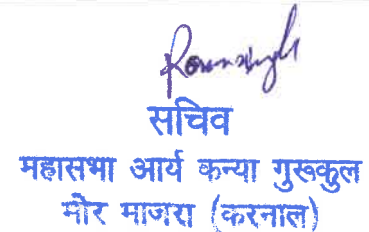 सचिव
महासभा आर्य कन्या गुरुकुल
मोर माजरा (करनाल)